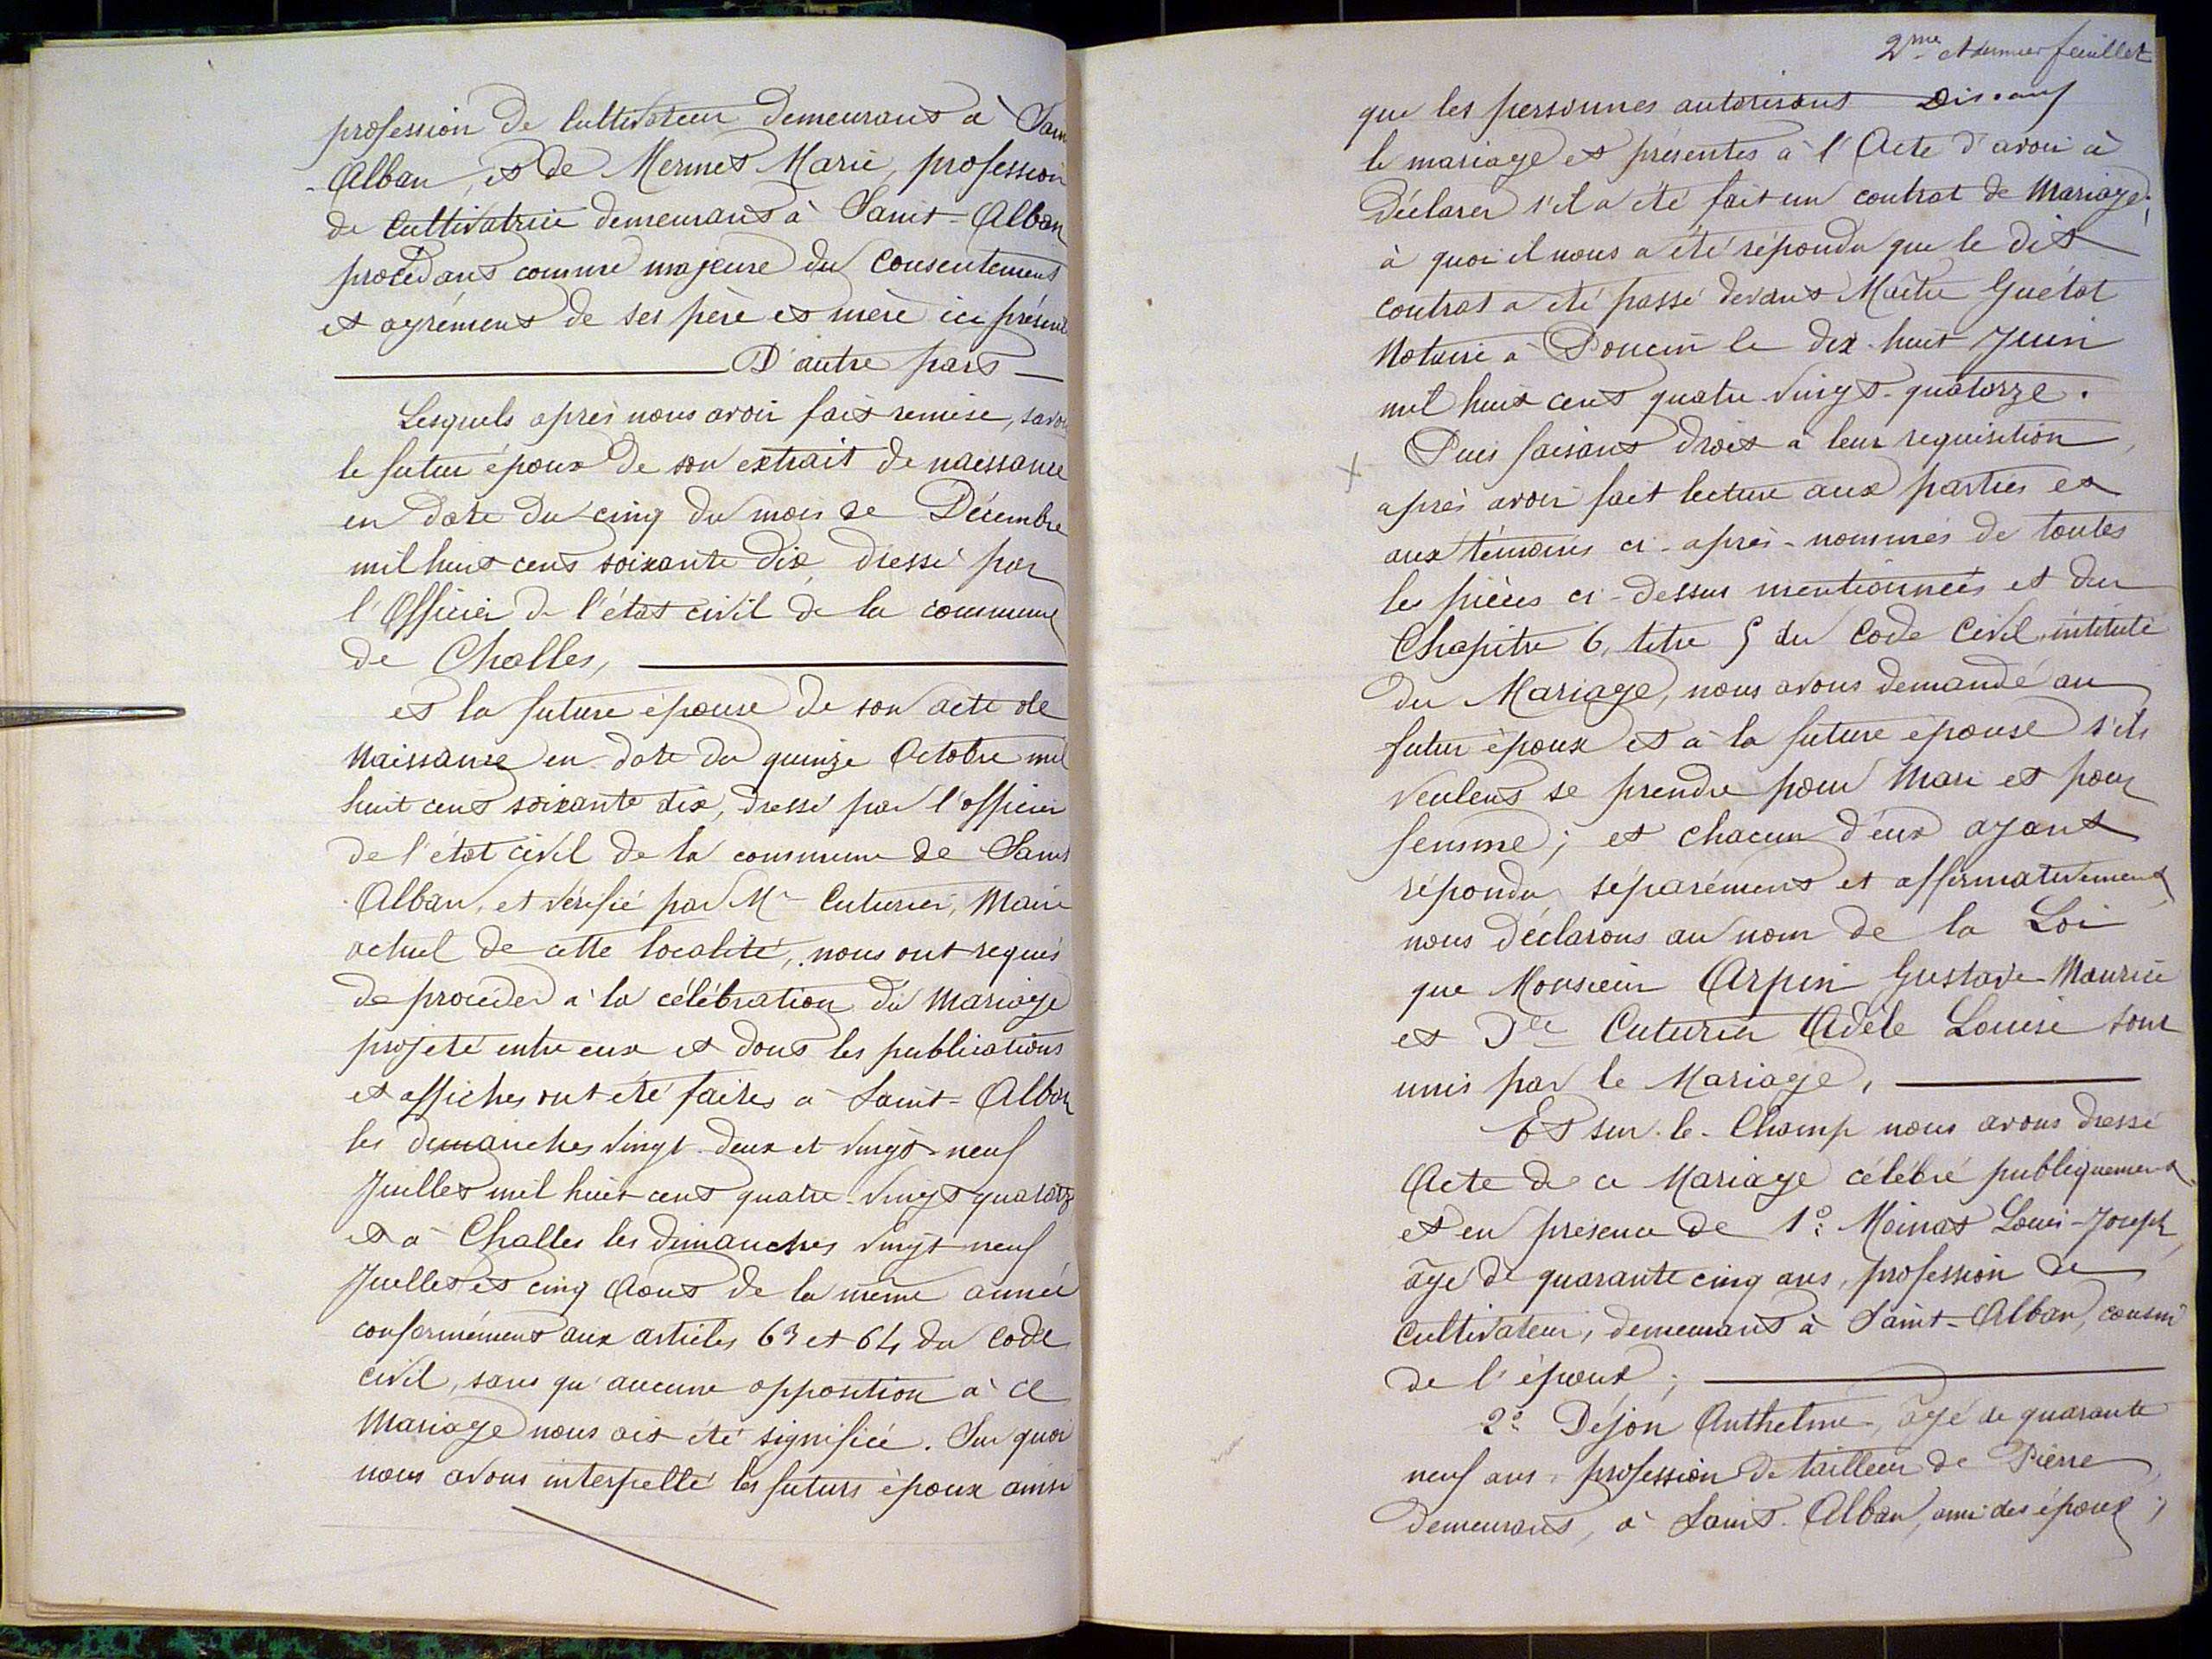 profession de Cultivateur demeurant à Sain
- Alban, et de Mermet Marie, profession
de Cultivatrice demeurant à Saint-Alban
procédant comme majeure du Consentement
et agrément de ses père et mère ici présent
D'autre part
Lesquels après nous avoir fait remise, savoir
le futur époux de son extrait de naissance
en date du cinq du mois de Décembre
mil huit cent soixante dix, dressé par
l'Officier de l'état civil de la commune
de Challes,
et la future épouse de son acte de
Naissance en date du quinze Octobre mil
huit cent soixante dix, dressé par l'officier
de l'état civil de la commune de Saint
Alban, et vérifié par Mr Cuturier, Maire
actuel de cette localité, nous ont requis
de procéder à la célébration du Mariage
projeté entre eux et dont les publications
et affiches ont été faites à Saint-Alban
les dimanches vingt-deux et vingt-neuf
Juillet mil huit cent quatre-vingt quatorze
et à Challes les dimanches vingt-neuf
Juillet et cinq Août de la même année
conformément aux articles 63 et 64 du Code
civil, sans qu'aucune opposition à ce
Mariage nous ait été signifiée. Sur quoi
nous avons interpellé les futurs époux ainsi
2me et dernier feuillet
que les personnes autorisant
le mariage et présentes à l'Acte d'avoir à
Déclarer s'il a été fait un contrat de Mariage;
à quoi il nous a été répondu que le dit
contrat a été passé devant Maître Guétat
Notaire à Poncin le dix-huit Juin
mil huit cent quatre-vingt-quatorze.
Puis faisant droit à leur requisition,
après avoir fait lecture aux parties et
aux témoins ci-après-nommés de toutes
les pièces ci-dessus mentionnées et du
Chapitre 6, titre 5 du Code Civil, intitulé
du Mariage, nous avons demandé au
futur époux et à la future épouse s'ils
veulent se prendre pour Mari et pour
femme; et chacun d'eux ayant
répondu séparément et affirmativement,
nous déclarons au nom de la Loi
que Monsieur Arpin Gustave-Maurice
et Dlle Cuturier Adèle Louise sont
unis par le Mariage.
Et sur-le-Champ nous avons dressé
Acte de ce Mariage célébré publiquement
et en présence de 1° Moinat Louis-Joseph,
âgé de quarante cinq ans, profession de
Cultivateur, demeurant à Saint-Alban, cousin
de l'époux;
2° Déjon Anthelme, âgé de quarante
neuf ans, profession de tailleur de Pierre,
demeurant, à Saint-Alban, ami des époux;